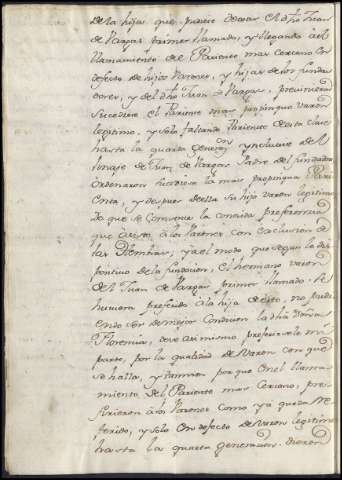 de la hija que pudiese dexar el dho Juan
de Vargas primer llamado, y llegando à el
llamamiento de el Pariente mas cercano en
defecto de hijos Varones, y hijas de los funda
dores, y del dho Juan de Vargas, previnieron
Sucediese el Pariente mas propinquo varon
legitimo, y solo faltando Pariente de esta clase
hasta la quarta generon. ynclusive del
linage de Juan de Vargas Padre del fundador
ordenaron Sucediera la mas propinqua Pari
enta, y despues della su hijo varon legitimo
de que se convence la conocida preferencia
que dieron à los Varones con exclusion de
las Hembras, y à el modo que segun la dis
positivo de la fundacion, el hermano varon
del Juan de Vargas primer llamado, se
huviera preferido à la hija de este, no pudi
endo ser de mejor condicion la dha Doña
Florencia, deve asi mismo preferirse le mi
parte, por la qualidad de Varon con que
se halla, y tambien por que en el llama
miento del Pariente mas Cercano, pre
firieron à los Varones como yà queda re
ferido, y solo en defecto de Varon legitimo
hasta la quarta generacion dieron